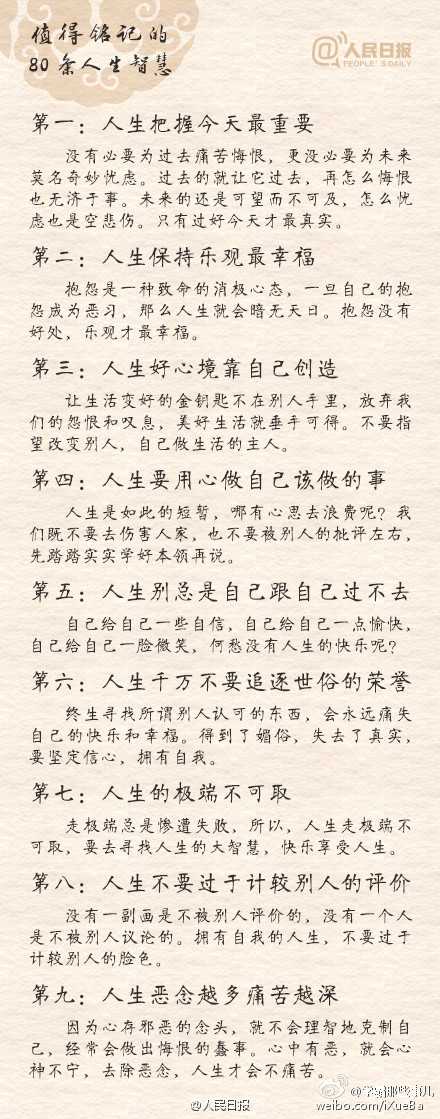 值得铭记的
80条人生智慧
@人民日报
PEOPLE'S DAILY
第一：人生把握今天最重要
没有必要为过去痛苦悔恨，更没必要为未来
莫名奇妙忧虑。过去的就让它过去，再怎么悔恨
也无济于事。未来的还是可望而不可及，怎么忧
虑也是空悲伤。只有过好今天才最真实。
第二：人生保持乐观最幸福
抱怨是一种致命的消极心态，一旦自己的抱
怨成为恶习，那么人生就会暗无天日。抱怨没有
好处，乐观才最幸福。
第三：人生好心境靠自己创造
让生活变好的金钥匙不在别人手里，放弃我
们的怨恨和叹息，美好生活就垂手可得。不要指
望改变别人，自己做生活的主人。
第四：人生要用心做自己该做的事
人生是如此的短暂，哪有心思去浪费呢？我
们既不要去伤害人家，也不要被别人的批评左右，
先踏踏实实学好本领再说。
第五：人生别总是自己跟自己过不去
自己给自己一些自信，自己给自己一点愉快，
自己给自己一脸微笑，何愁没有人生的快乐呢？
第六：人生千万不要追逐世俗的荣誉
终生寻找所谓别人认可的东西，会永远痛失
自己的快乐和幸福。得到了媚俗，失去了真实，
要坚定信心，拥有自我。
第七：人生的极端不可取
走极端总是惨遭失败，所以，人生走极端不
可取，要去寻找人生的大智慧，快乐享受人生。
第八：人生不要过于计较别人的评价
没有一副画是不被别人评价的，没有一个人
是不被别人议论的。拥有自我的人生，不要过于
计较别人的脸色。
第九：人生恶念越多痛苦越深
因为心存邪恶的念头，就不会理智地克制自
己，经常会做出悔恨的蠢事。心中有恶，就会心
神不宁，去除恶念，人生才会不痛苦。
@人民日报
weibo.com/iXueBa